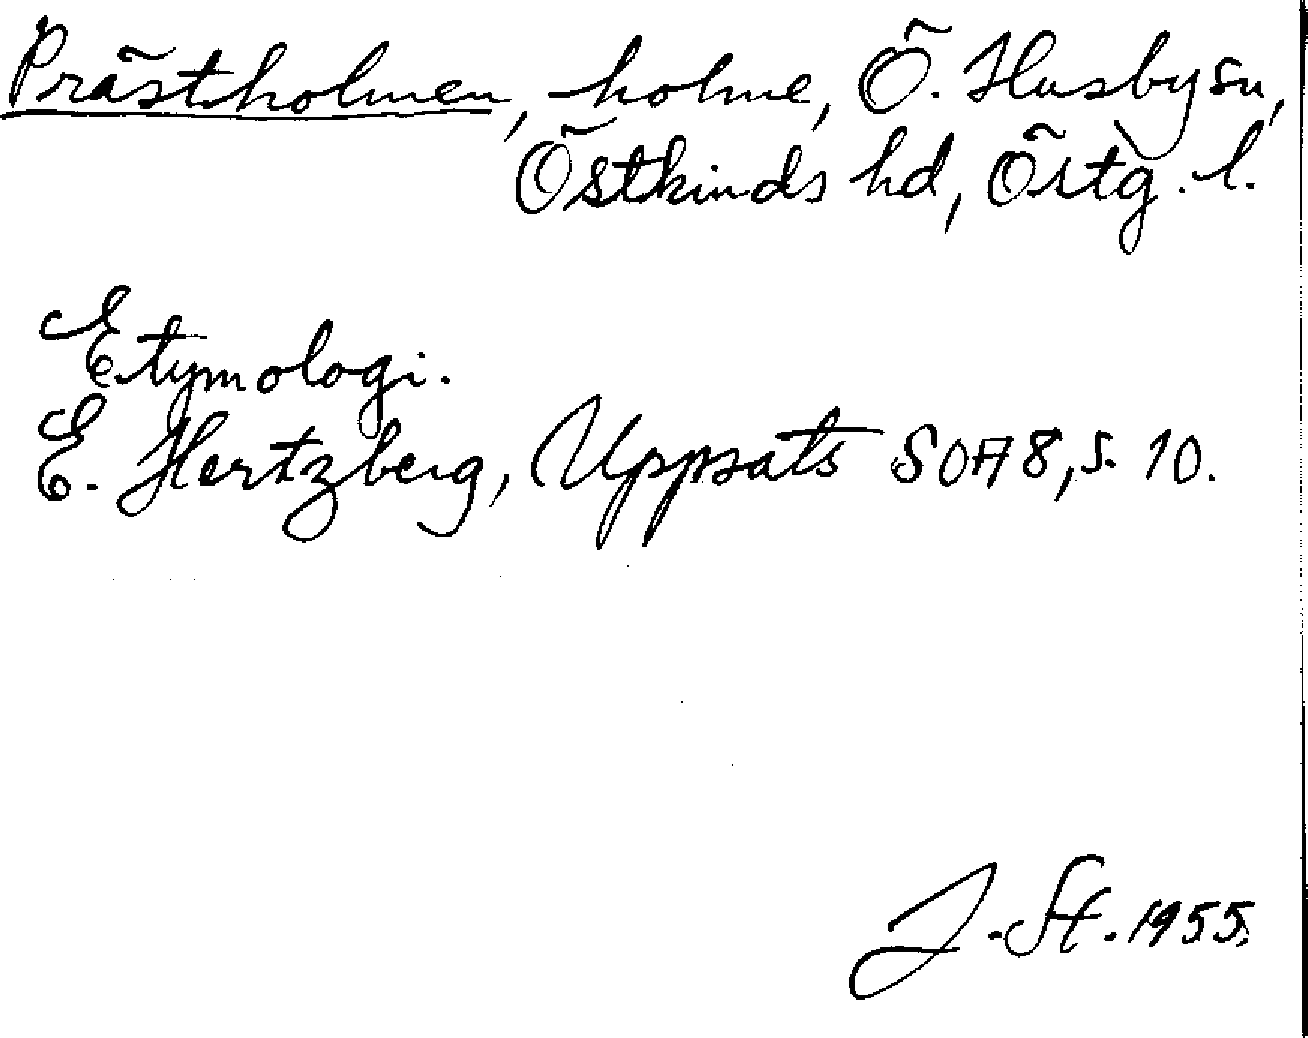 Prästholmen, holme, Ö. Husby sn,
Östkinds hd, Östg. l.
Etymologi.
E. Hertzberg, Uppsats SOA 8, s. 10.
J. St. 1955.